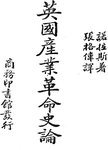 諾拉斯著
張格偉譯
英國產業革命史論
商務印書館發行